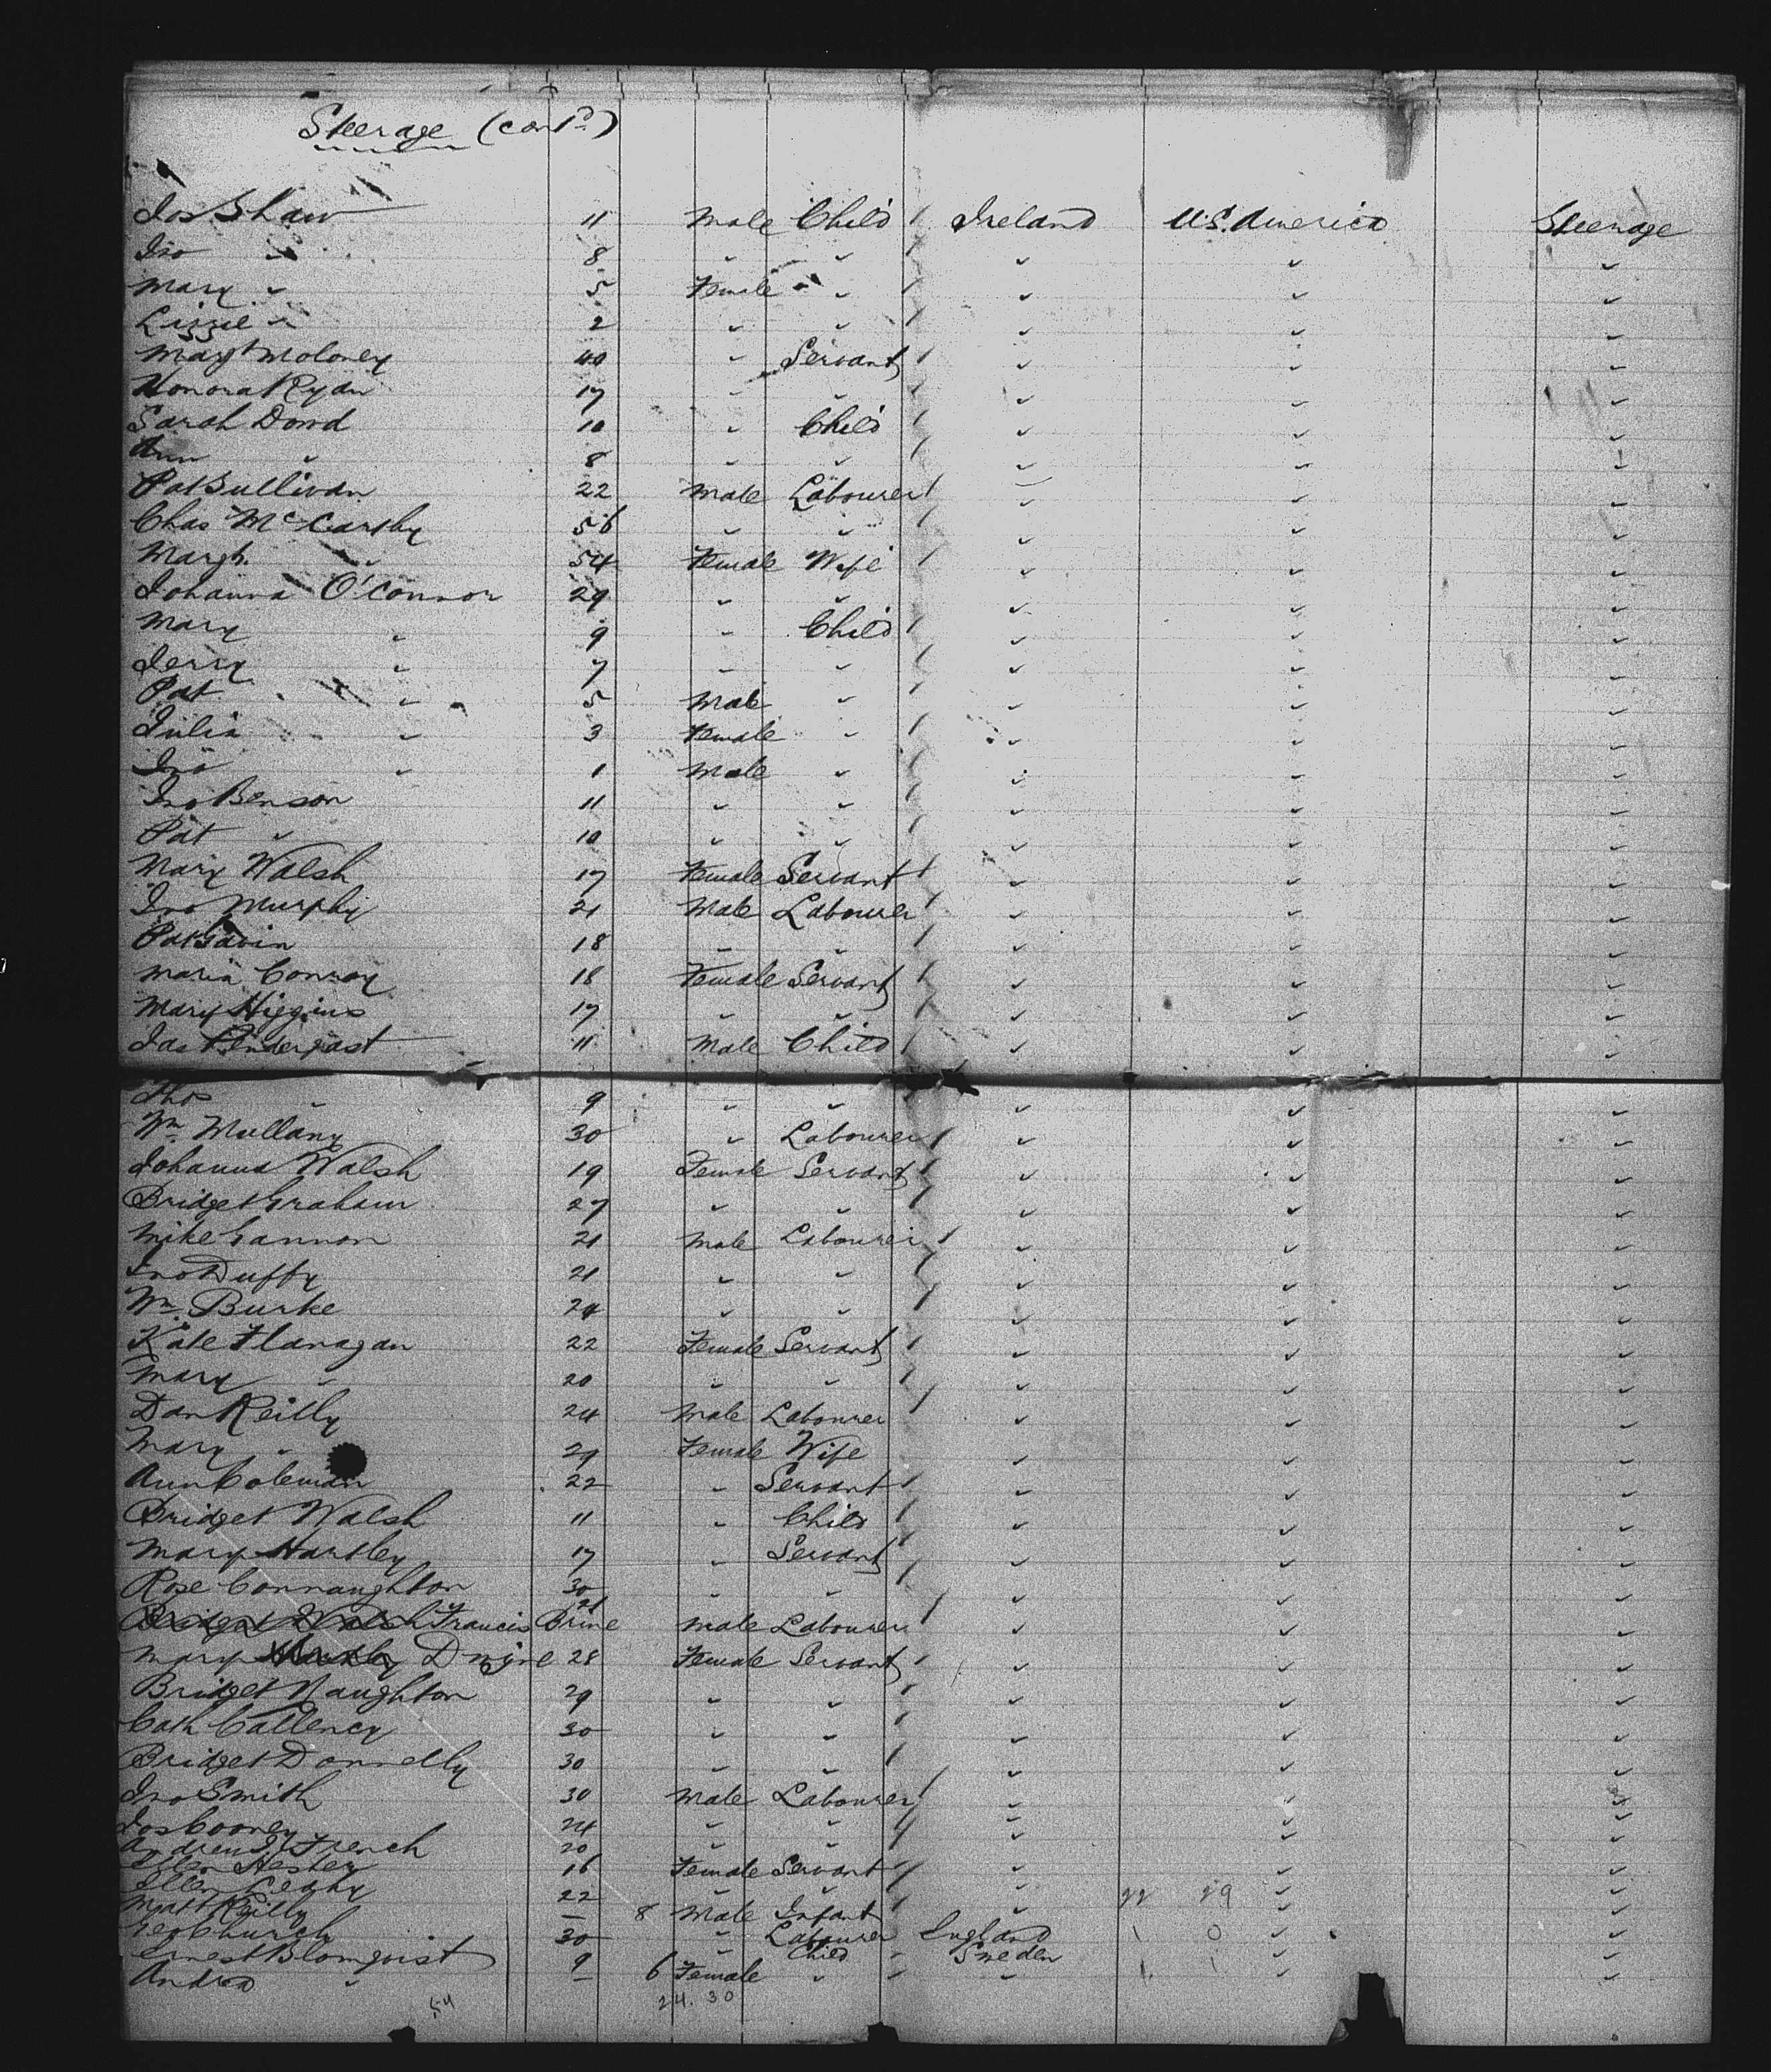 Steerage (cont<sup>d</sup>)
Jos Shaw 11 Male Child Ireland U.S. America Steerage
Jno " 8 " " " " "
Mary " 5 Female " " " "
Lizzie " 2 " " " " "
Margt Moloney 40 " Servant " " "
Honora Ryan 17 " " " " "
Sarah Dowd 10 " Child " " "
Ann " 8 " " " " "
Pat Sullivan 22 Male Labourer " " "
Chas McCarthy 56 " " " " "
Margt. " 54 Female Wife " " "
Johanna O'Connor 29 " " " " "
Mary " 9 " Child " " "
Jerry " 7 " " " " "
Pat " 5 Male " " " "
Julia " 3 Female " " " "
Jno " 1 Male " " " "
Jno Benson 11 " " " " "
Pat " 10 " " " " "
Mary Walsh 17 Female Servant " " "
Jno Murphy 21 Male Labourer " " "
Pat Gavin 18 " " " " "
Maria Conroy 18 Female Servant " " "
Mary Higgins 17 " " " " "
Jas Pendergast 11 Male Child " " "
Thos " 9 " " " " "
Wm. Mullany 30 " Labourer " " "
Johanna Walsh 19 Female Servant " " "
Bridget Graham 27 " " " " "
Mike Gannon 21 Male Labourer " " "
Jno Duffy 21 " " " " "
Wm. Burke 24 " " " " "
Kate Flanagan 22 Female Servant " " "
Mary " 20 " " " " "
Dan Reilly 24 Male Labourer " " "
Mary " 29 Female Wife " " "
Ann Coleman 22 " Servant " " "
Bridget Walsh 11 " Child " " "
Mary Hartley 17 " Servant " " "
Rose Connaughton 30 " " " " "
Bridget Walsh Francis Brine 21 Male Labourer " " "
Mary Hartley 28 Female Servant " " "
Bridget Naughton 29 " " " " "
Cath Callency 30 " " " " "
Bridget Donnelly 30 " " " " "
Jno Smith 30 Male Labourer " " "
Jos Cooney 24 " " " " "
Andrew French 20 " " " " "
Ellen Hester 16 Female Servant " " "
Ellen Leahy 22 " " " 22 29 " "
Matt Reilly – 8 Male Infant " " "
Geo Church 30 " Labourer England 1 0 " "
Ernest Blomqvist 9 " Child Sweden " "
Andrea " – 6 Female " " 1 " "
54 24. 30